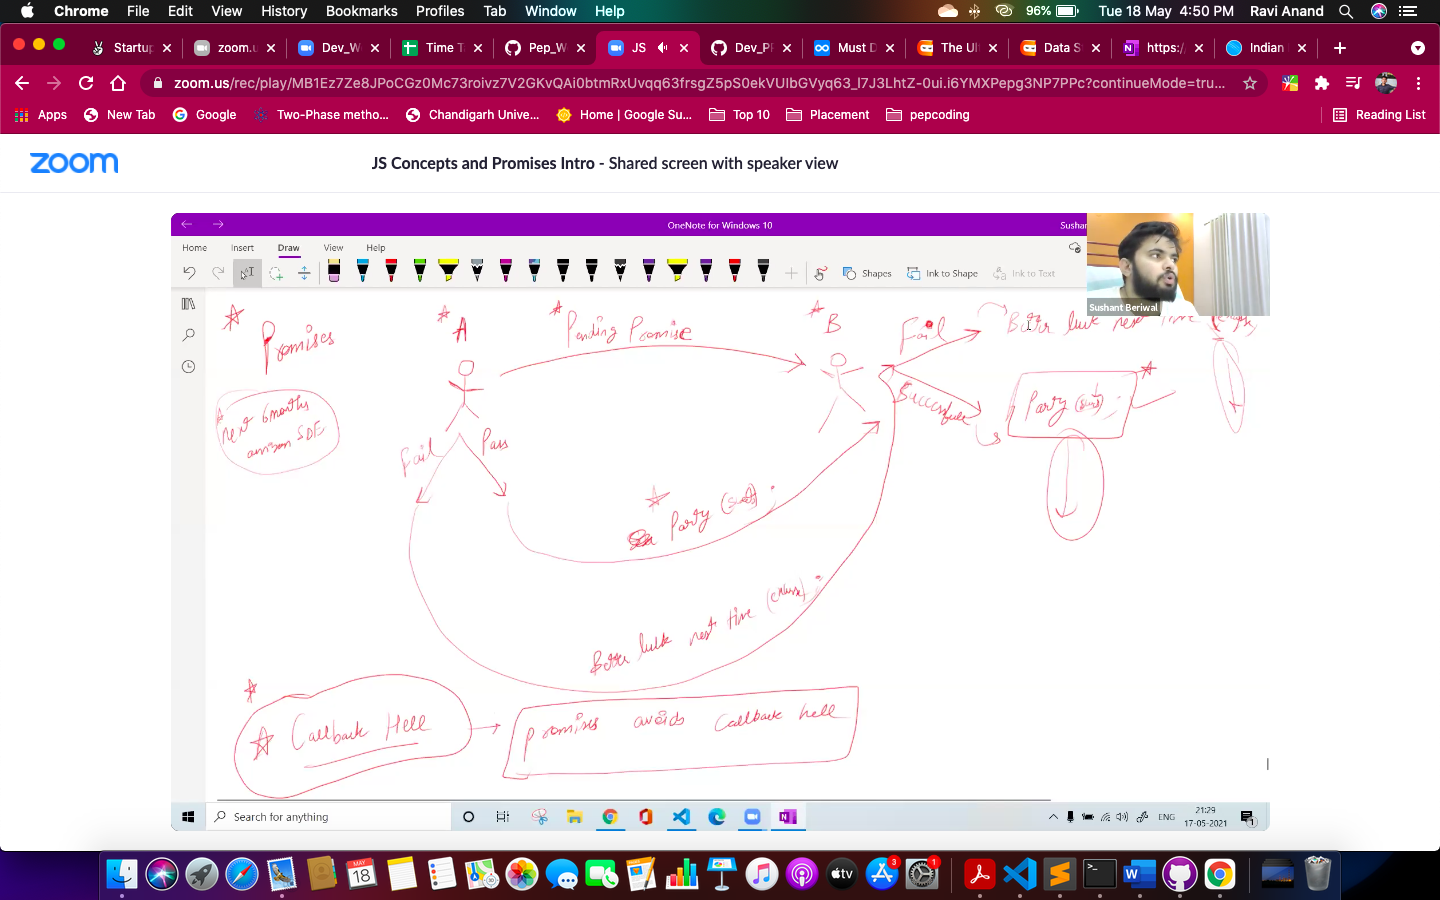 Chrome File Edit View History Bookmarks Profiles Tab Window Help 96% Tue 18 May 4:50 PM Ravi Anand
Startup zoom.u Dev_W Time T Pep_W JS Dev_P Must D The Ul Data S https:/ Indian
zoom.us/rec/play/MB1Ez7Ze8JPoCGz0Mc73roivz7V2GKvQAi0btmRxUvqq63frsgZ5pS0ekVUIbGVyq63_I7J3LhtZ-0ui.i6YMXPepg3NP7PPc?continueMode=tru...
Apps New Tab Google Two-Phase metho... Chandigarh Unive... Home | Google Su... Top 10 Placement pepcoding Reading List
zoom JS Concepts and Promises Intro - Shared screen with speaker view
OneNote for Windows 10 Susha
Home Insert Draw View Help
Shapes Ink to Shape Ink to Text
Sushant Beriwal
Promises A Pending Promise B Fail luck next time
next 6 months
amazon SDE
Successful Party
Fail Pass
Party
luck next time
Callback Hell
promises avoids callback hell
Search for anything ENG 21:29
17-05-2021
1
MAY
18
tv 3 1